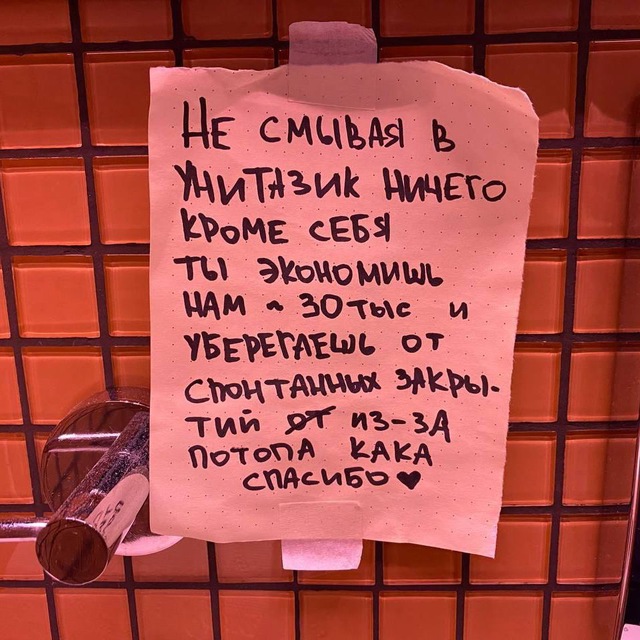 НЕ СМЫВАЯ В
УНИТАЗИК НИЧЕГО
КРОМЕ СЕБЯ
ТЫ ЭКОНОМИШЬ
НАМ ~ 30 тыс и
УБЕРЕГАЕШЬ ОТ
СПОНТАННЫХ ЗАКРЫ-
ТИЙ ОТ ИЗ-ЗА
ПОТОПА КАКА
СПАСИБО ♥